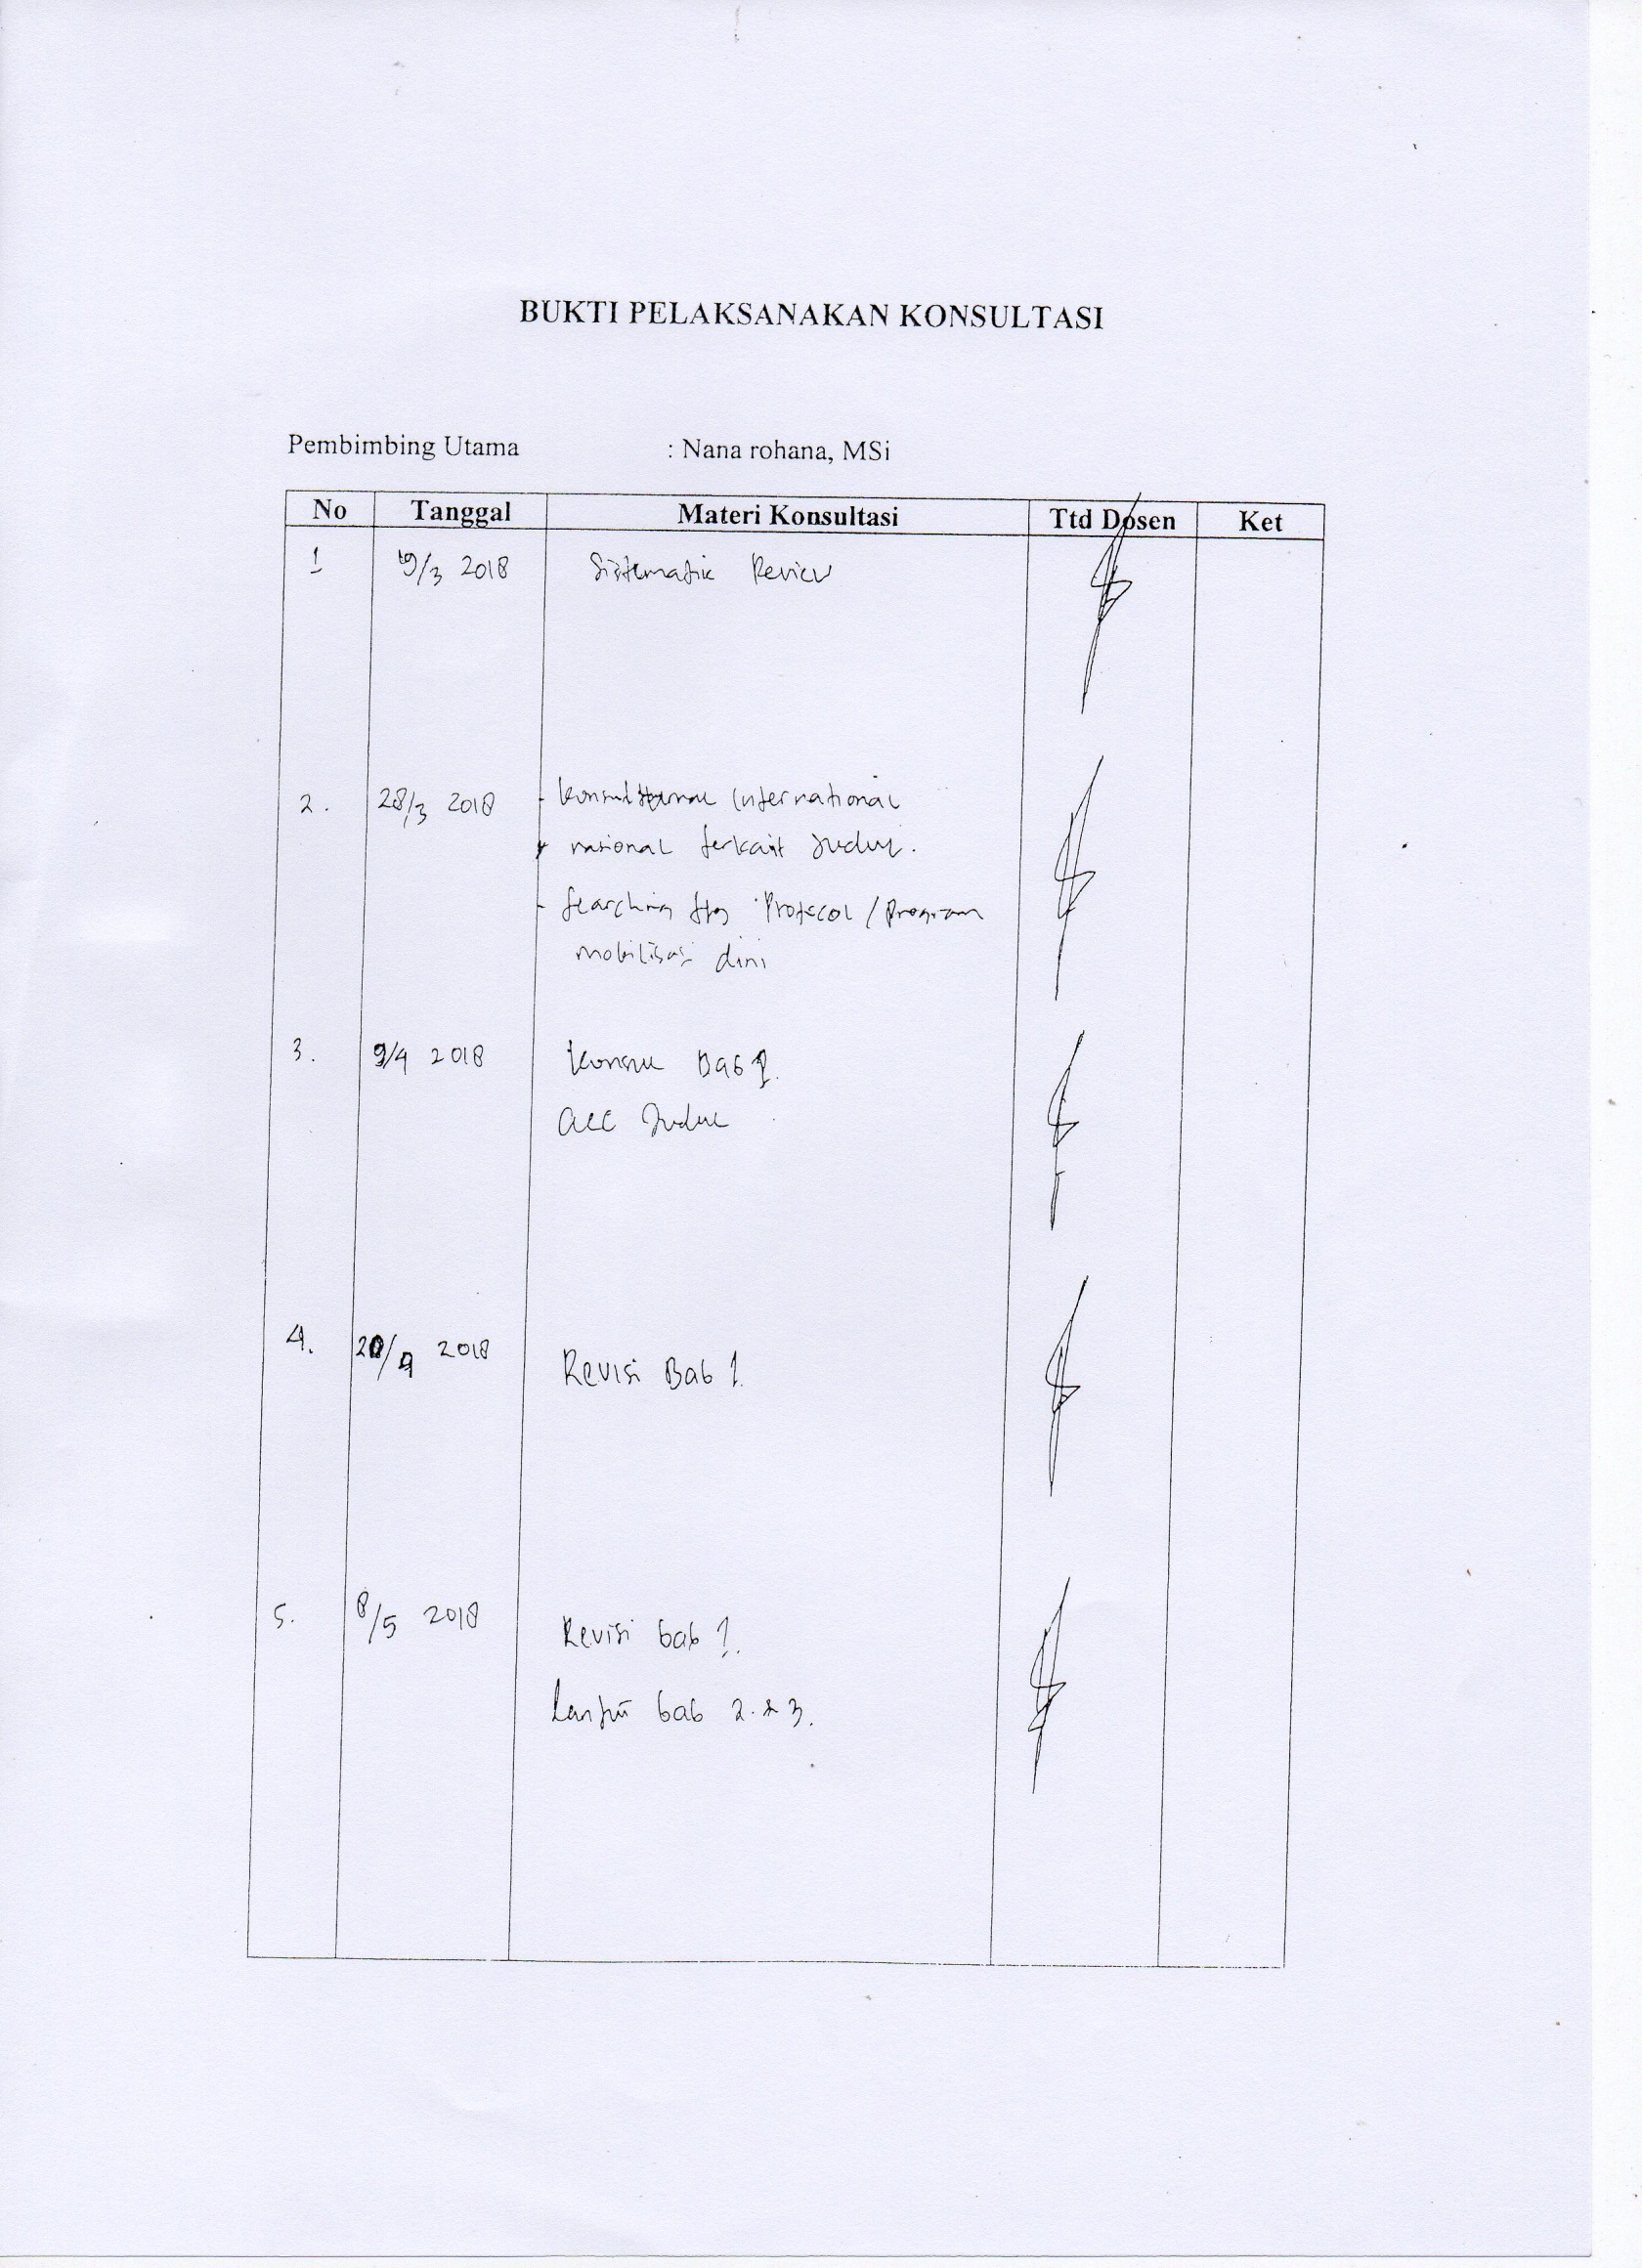 BUKTI PELAKSANAKAN KONSULTASI
Pembimbing Utama : Nana rohana, MSi
No Tanggal Materi Konsultasi Ttd Dosen Ket
1 9/3 2018 Sistematic Review
2. 28/3 2018 - International
nasional terkait Judul.
- Searching ttg Protocol / Program
mobilisasi dini
3. 9/4 2018 Konsul Bab 1.
acc Judul
4. 20/4 2018
Revisi Bab 1.
5. 8/5 2018
Revisi bab 1.
Lanjut bab 2 & 3.